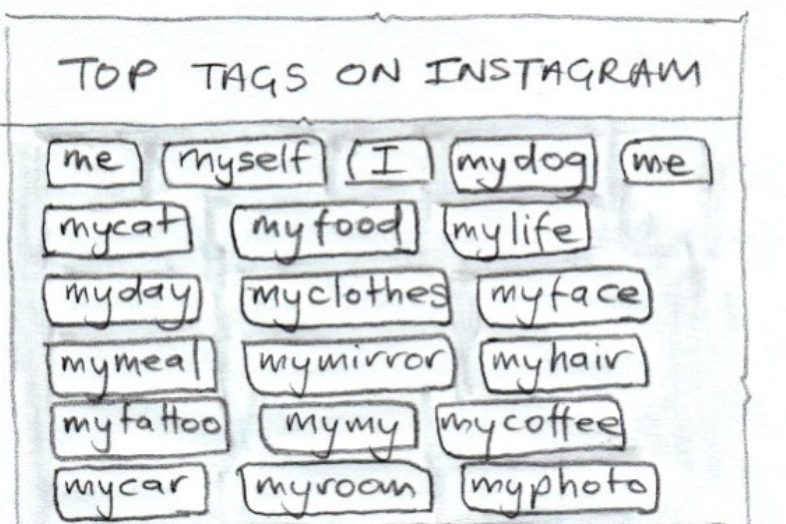 TOP TAGS ON INSTAGRAM
me myself I mydog me
mycat myfood mylife
myday myclothes myface
mymeal mymirror myhair
mytattoo mymy mycoffee
mycar myroom myphoto